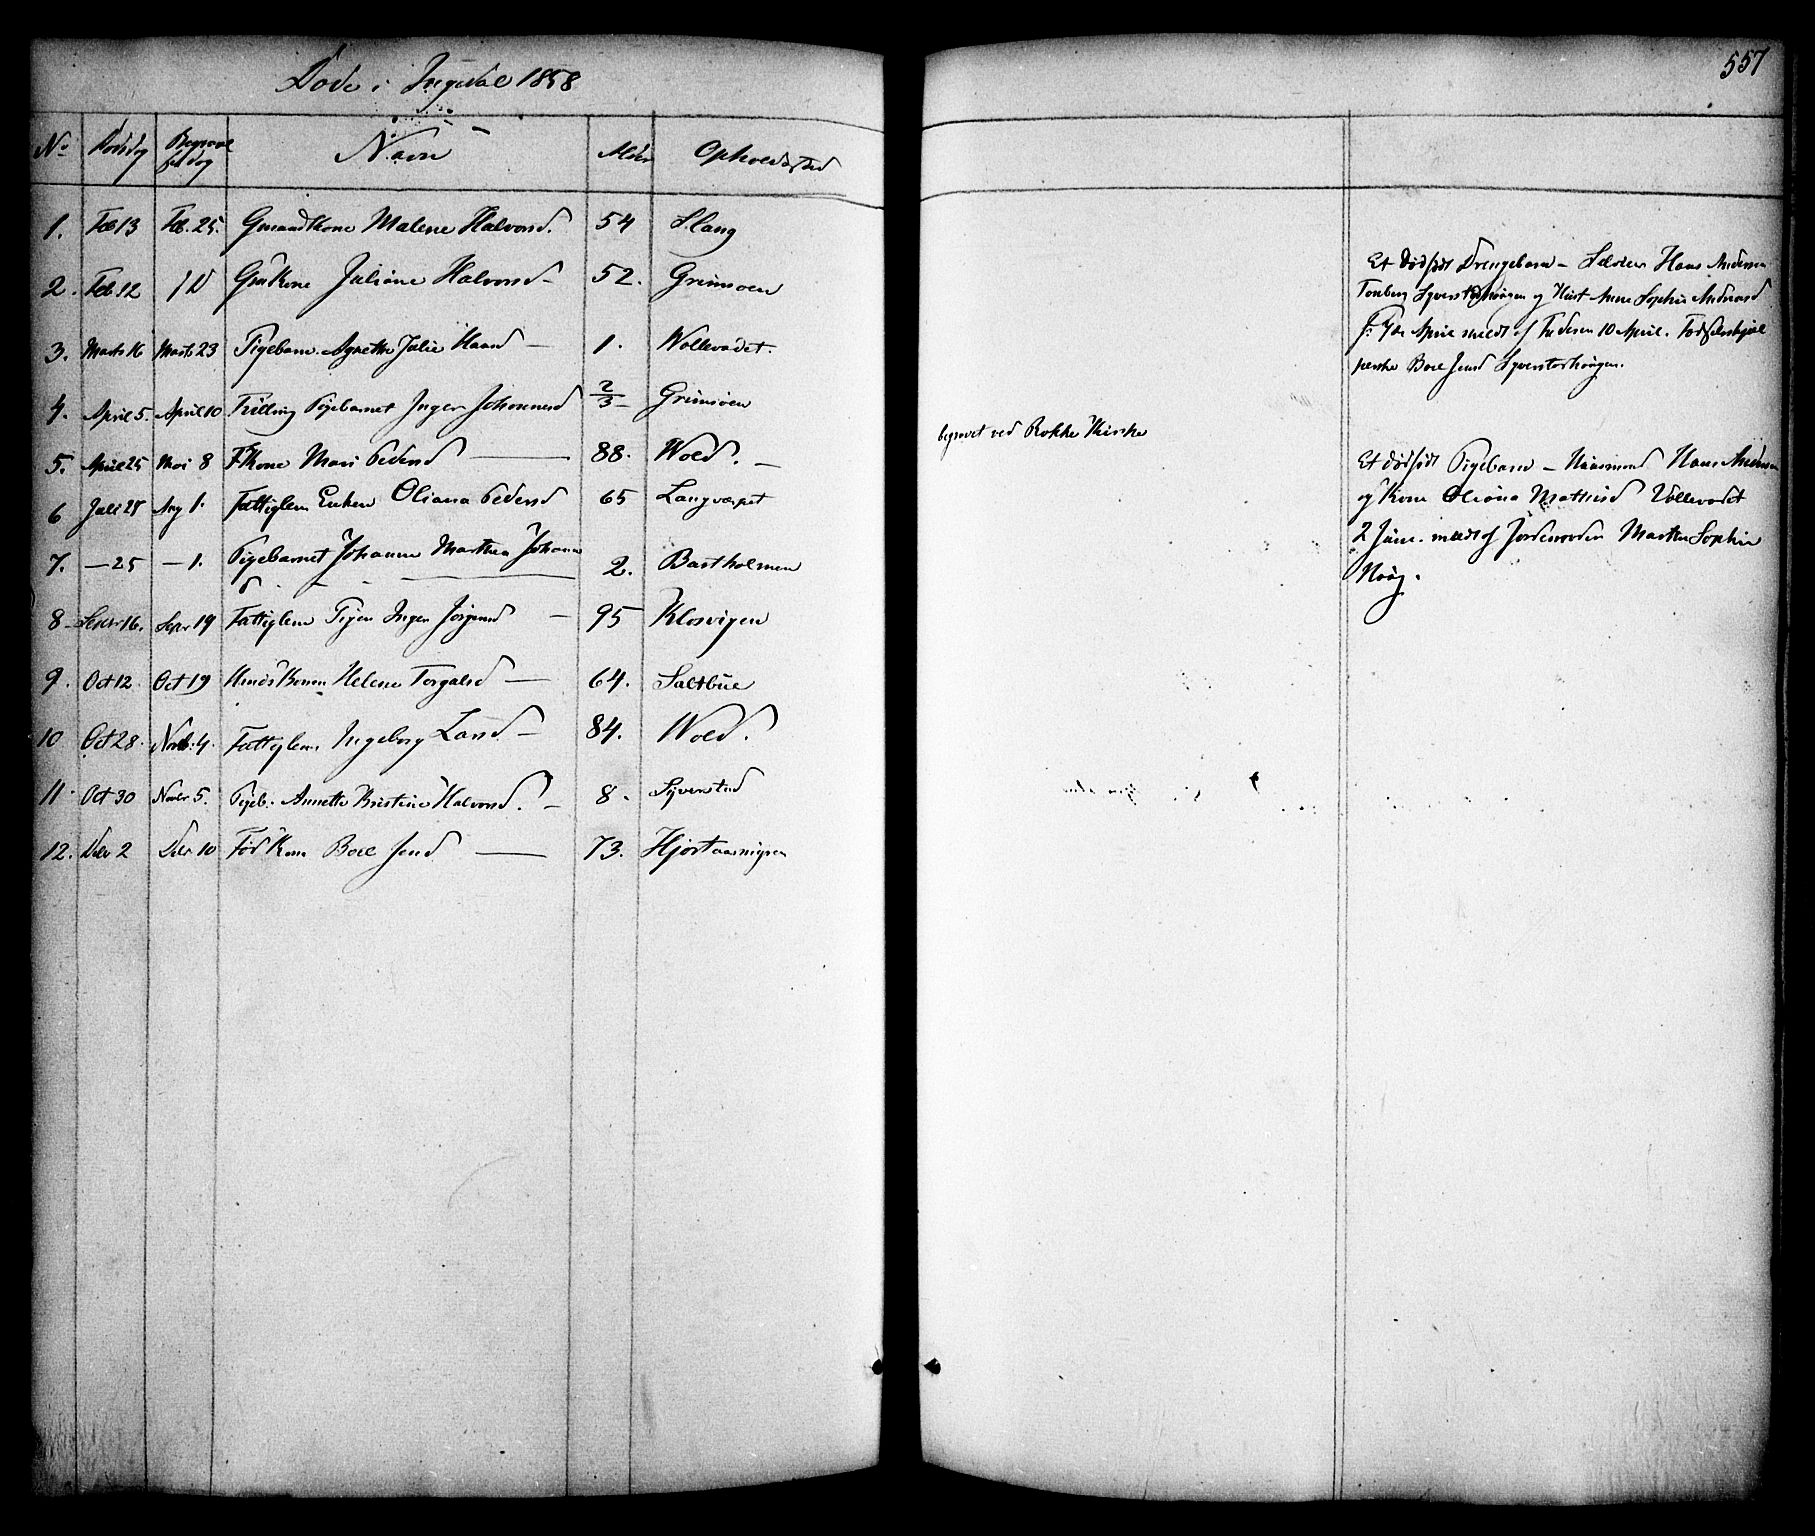 557
Døde i Ingedal 1858
No Dødsdag Begravelsesdag Navn Alder Opholdssted
1. Feb 13 Feb. 25. Gmandkone Malene Halvorsd. 54 Slang
2. Feb. 12 Gmkone Juliane Halvorsd - 52. Grimsøen
3. Marts 16 Marts 23 Pigebarn Agnethe Julie Haasd - 1. Wollevadet.
4. April 5. April 10 Tvilling Pigebarnet Inger Johannesd 2/3 - Grimsøen
5. April 25 Mai 8 Fkone Mari Pedersd - 88. Wold. -
6 Juli 25 Aug 1. Fattiglem Enken Oliana Pedersd 65 Langværpet
7. - 25 - 1. Pigebarnet Johanne Marthea Johann
d - - 2. Bastholmen
8 - Septr 16. Septr 19 Fattiglem Pigen Inger Jørgensd - 95 Klosvigen
9. Oct 12 Oct 19 Helene Torgalsd - 64. Saltbue
10 Oct 28. Novb. 4. Fattiglem Ingeborg Larsd - 84. Wold.
11. Oct 30 Novbr 5. Pigeb. Annette Kristine Halvorsd. - 8 - Syverstad
12. Debr 2 Debr 10 Fød Kone Boel Jensd - 73. Hjortaasmyren
begravet ved Rokke Kirke
Et dødfødt Drengebarn - Selveier Hans Andersen
Tonberg Syverstadhaugen og Hust Anne Sophie Andersd
f: 7de April meldt af Faderen 10 April. Fødselshjæl
perske Boel Jensd Syverstadhaugen.
Et dødfødt Pigebarn - Huusmand Hans Andersen
og Kone Oliana Mathisd Vollevadet
2 Juni. meldt af Jordemoderen Marthea Sophie